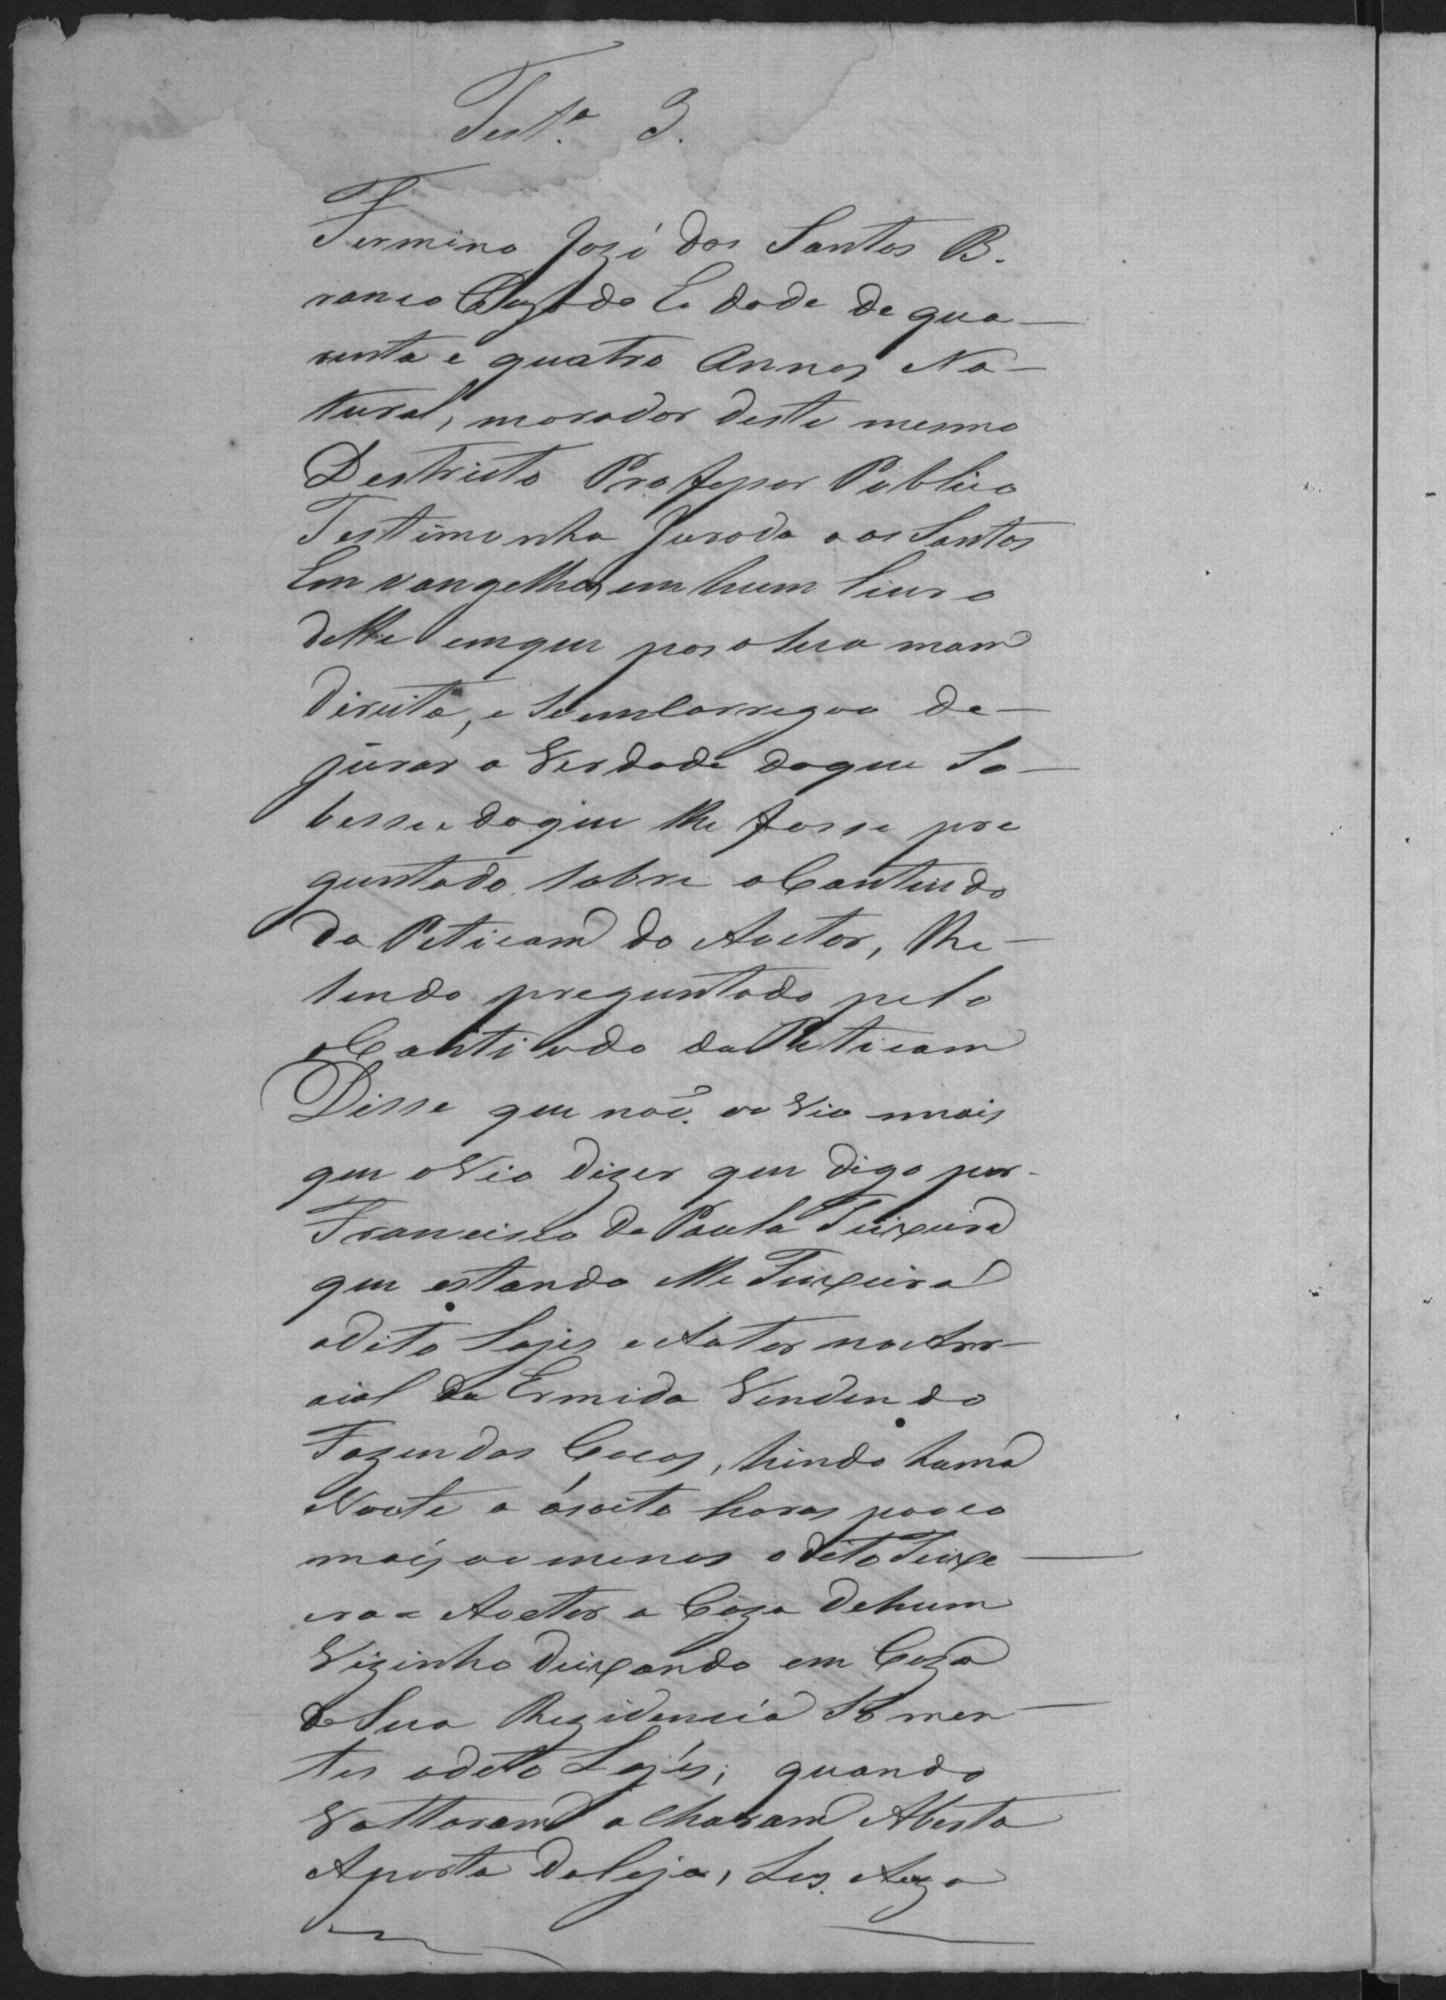 Test.ª 3.
Fermino José dos Santos B.
ranco Cazado Edade de qua
renta e quatro Annos Na
tural, morador deste mesmo
Destricto Professor Publico
Testimunha Jurada aos Santos
Emvangelhos em hum Livro
delles emque pos a sua mam
direita, e se emcarregou de
jurar a Verdade doque Sa
besse e doque lhe fosse pre
guntado sobre o Conteudo
da Peticam do Auctor, Me
sendo preguntado pelo
Contiudo da Peticam
Disse que não ou Vio mais
que o Vio dizer que digo por
Francisco de Paula Teixeira
que estando elle Teixeira
o dito Lajes e Autor no Arr
aial da Ermida Vendendo
Fazendas Cecas, hindo huma
Noute a ás oito horas pouco
mais ou menos o dito Teixe
era e Auctor a Caza dehum
Vizinho deixando em Caza
de Sua Rezidencia Somen
tes o detto Lajes; quando
Voltaram acharam Aberta
A porta da loja,